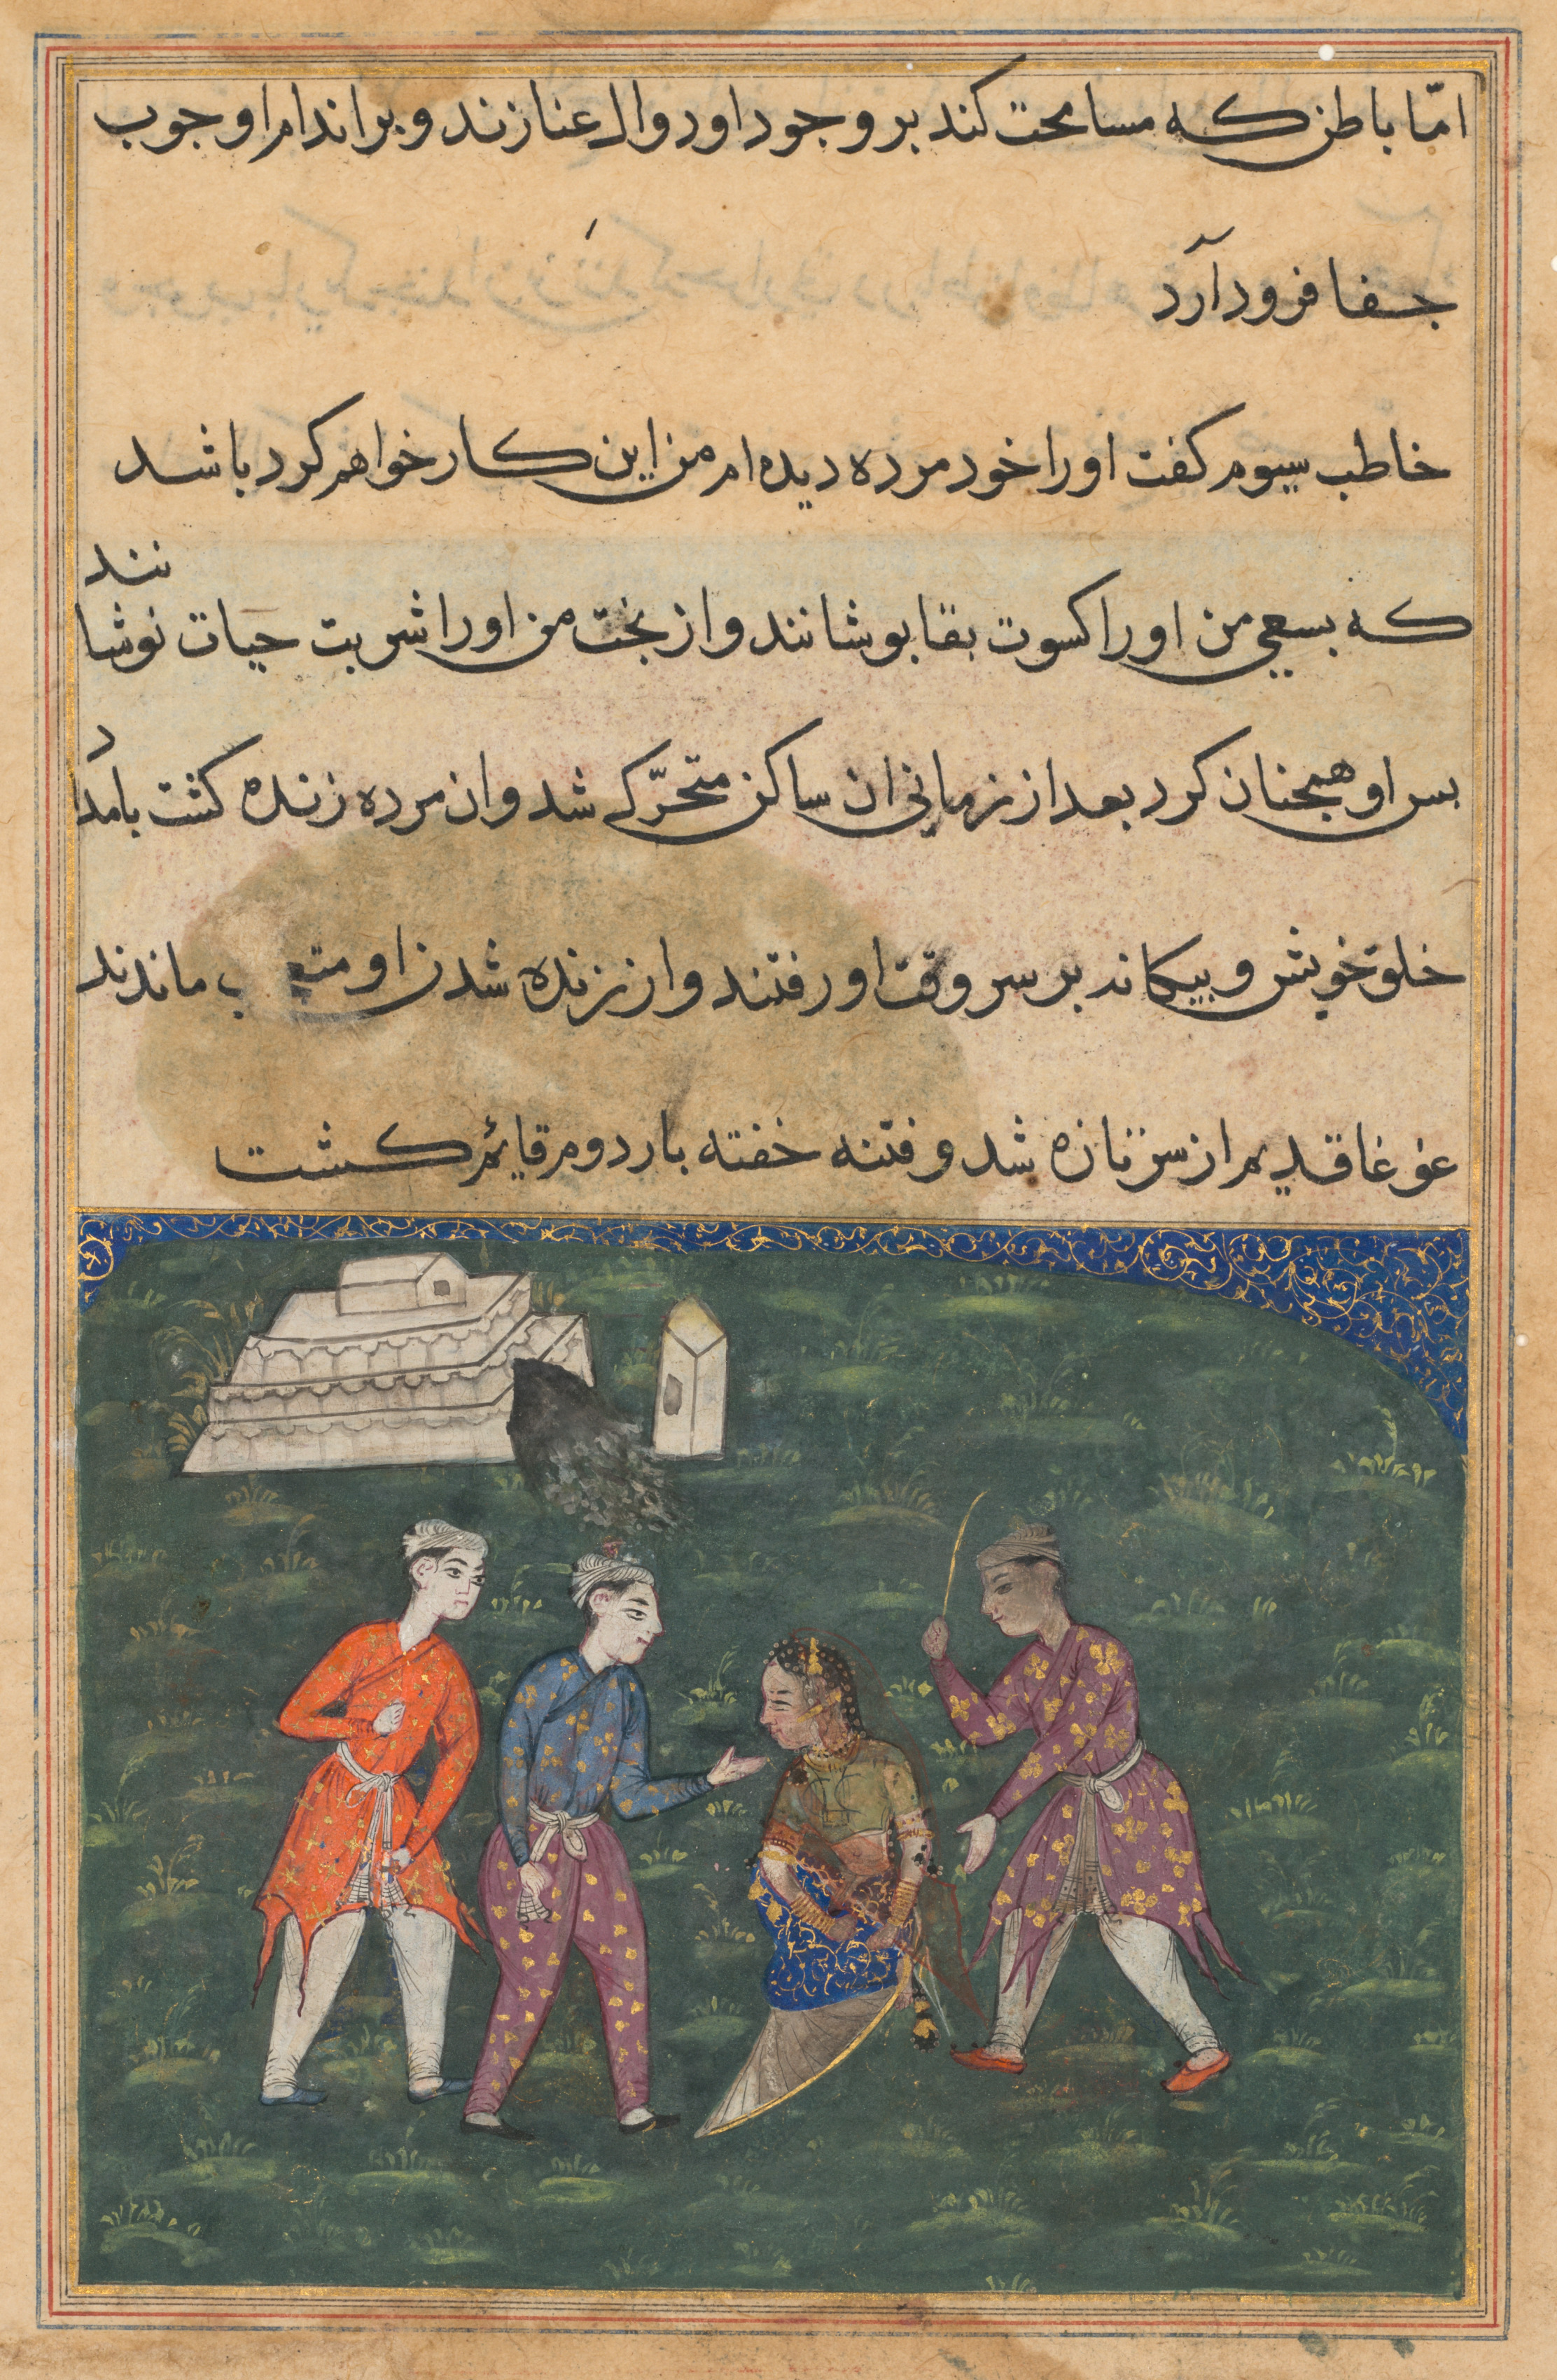 امّا باطن که مسامحت کند بر وجود او دوال عنا زند و بر اندام او چوب
جفا فرود آرد
خاطب سیوم کفت او را خود مرده دیده ام من این کار خواهم کرد باشد
که بسعی من او را کسوت بقا بوشانند و از بخت من او را شربت حیات نوشانند
بس او همجنان کرد بعد از زمانی ان ساکن متحرّک شد و ان مرده زنده کشت بامداد
خلق خویش و بیکانه بر سر وقت او رفتند و از زنده شدن او ماندند
غوغا قدیم از سر تازه شد و فتنه خفته بار دوم قایم کشت